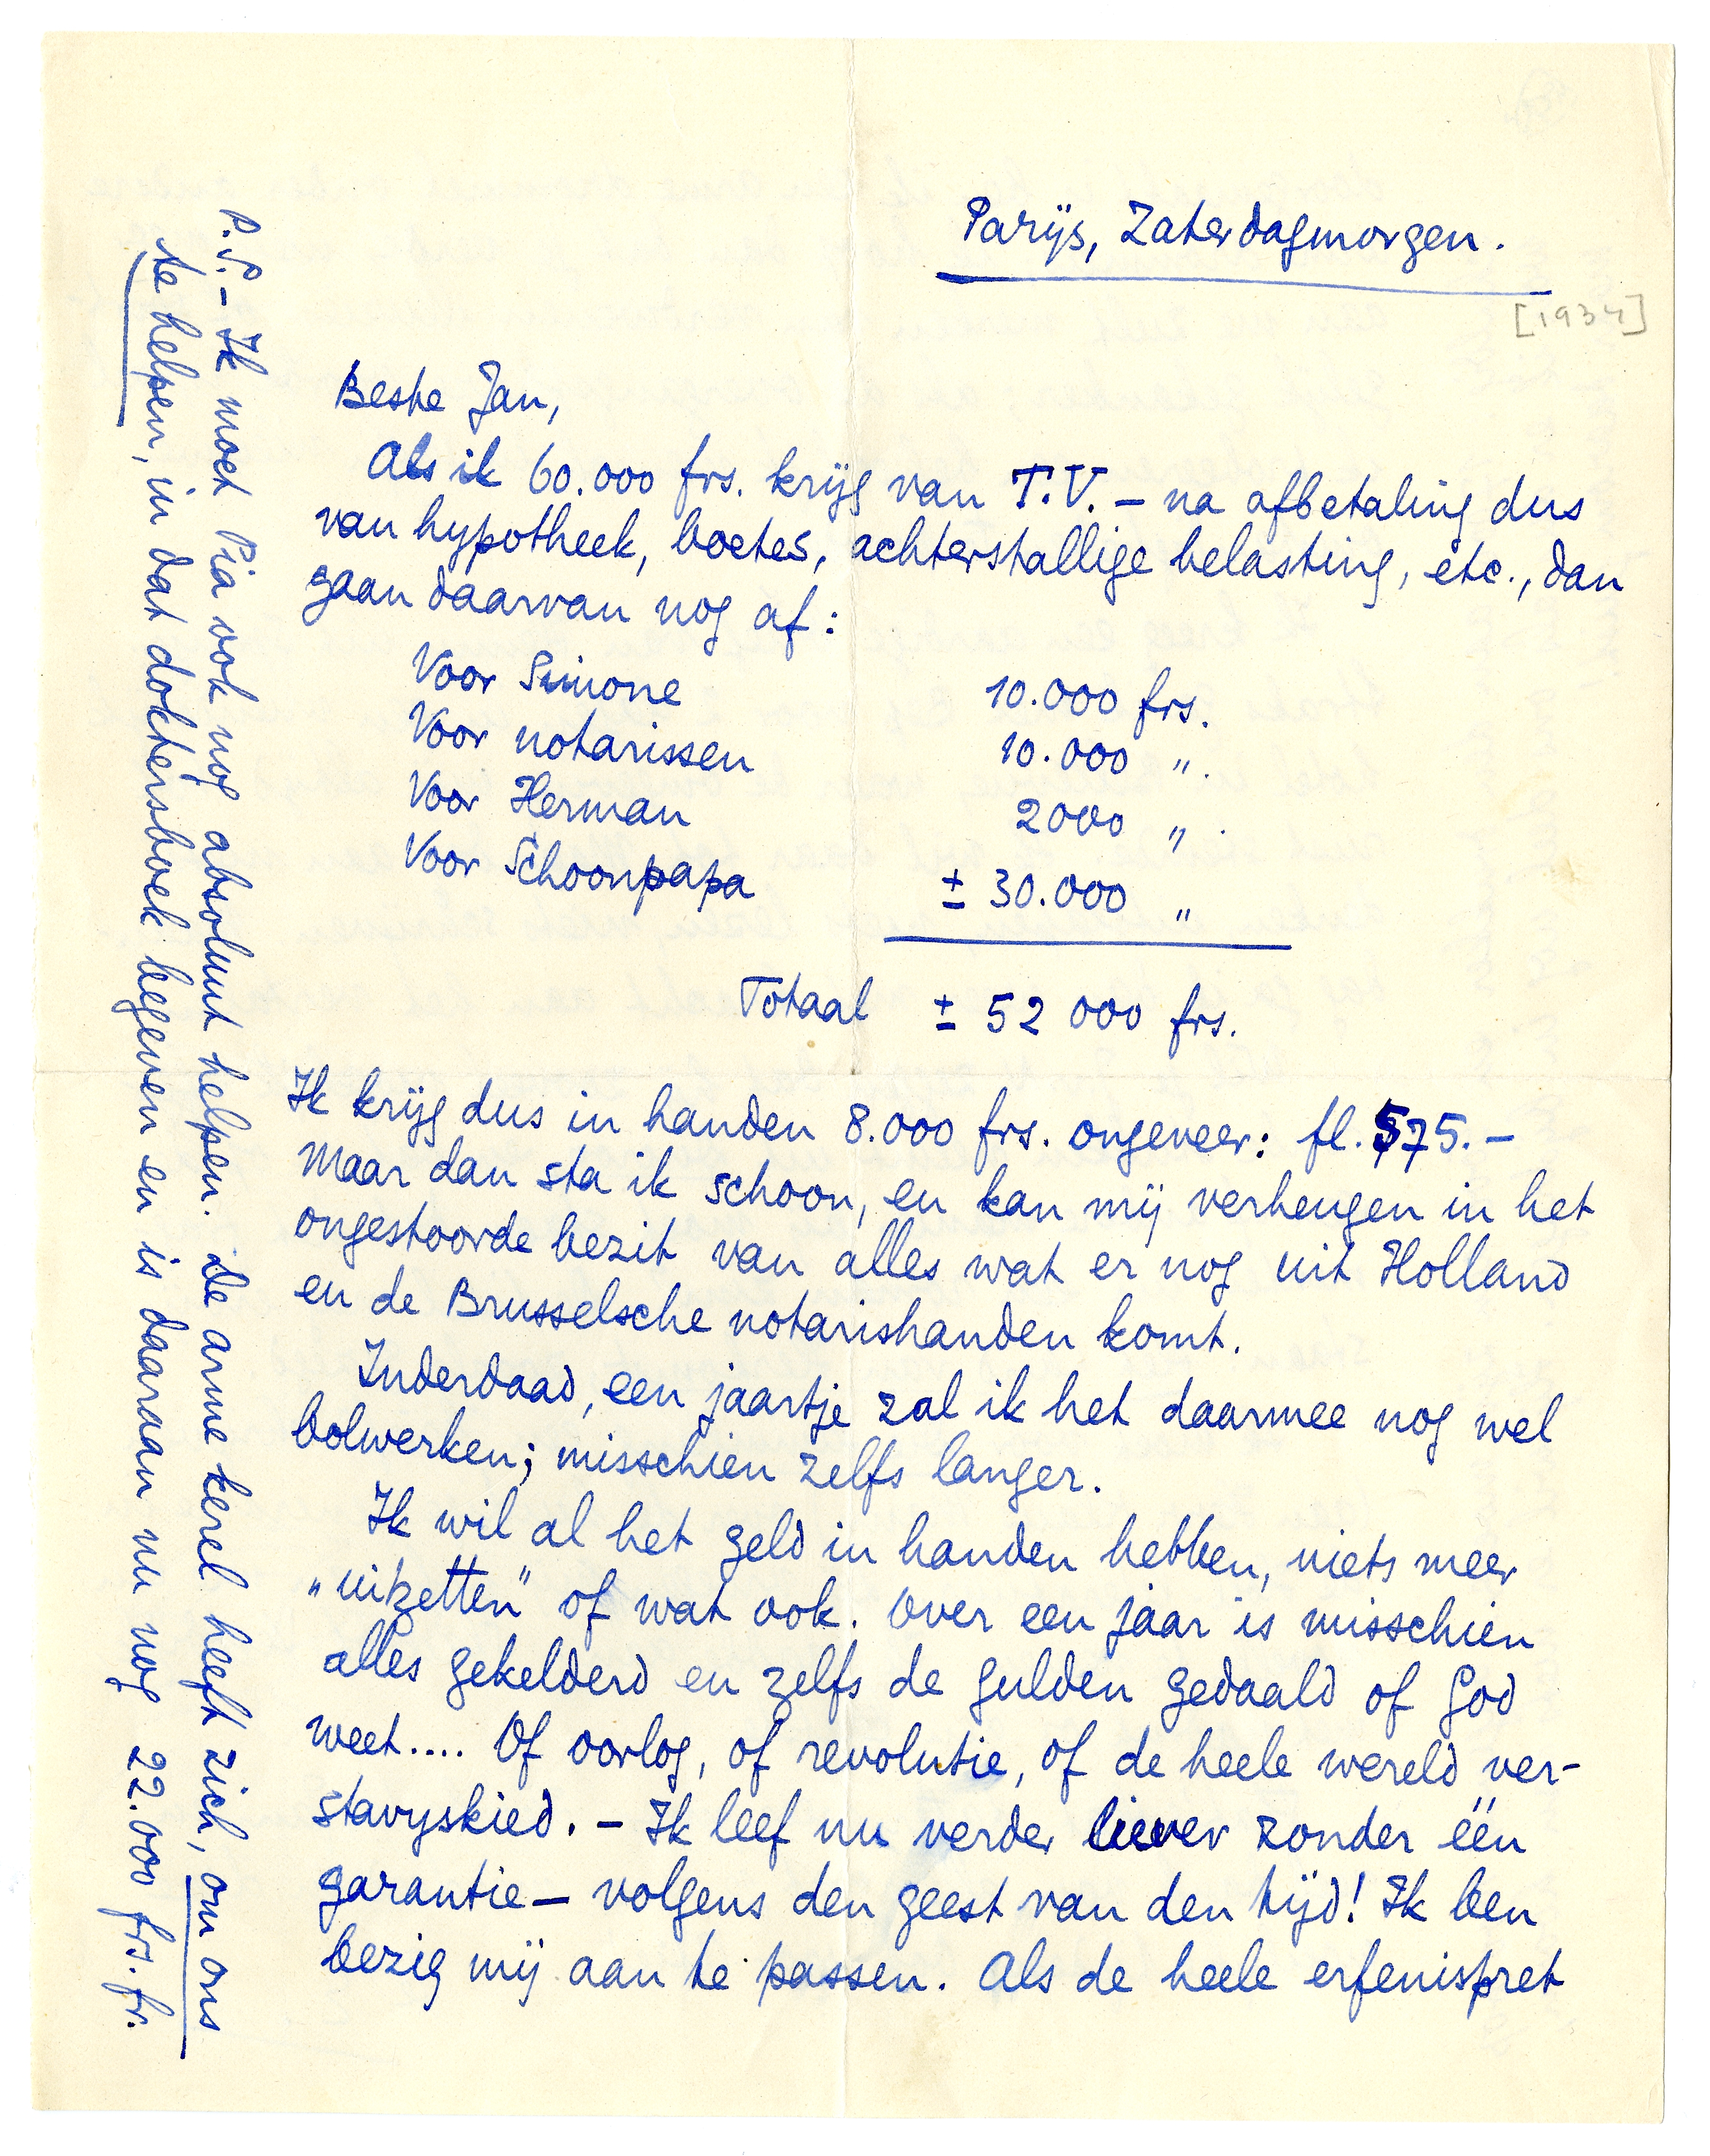 Parijs, Zaterdagmorgen.
[1934]
Beste Jan,
Als ik 60.000 frs. krijg van T.V. – na afbetaling dus
van hypotheek, boetes, achterstallige belasting, etc., dan
gaan daarvan nog af:
Voor Simone 10.000 frs.
Voor notarissen 10.000 ".
Voor Herman 2000 ".
Voor Schoonpapa ± 30.000 "
Totaal ± 52 000 frs.
Ik krijg dus in handen 8.000 frs. ongeveer: fl. 575.–
Maar dan sta ik schoon, en kan mij verheugen in het
ongestoorde bezit van alles wat er nog uit Holland
en de Brusselsche notarishanden komt.
Inderdaad, een jaartje zal ik het daarmee nog wel
bolwerken; misschien zelfs langer.
Ik wil al het geld in handen hebben, niets meer
„uitzetten" of wat ook. Over een jaar is misschien
alles gekelderd en zelfs de gulden gedaald of God
weet.... Of oorlog, of revolutie, of de heele wereld ver-
stavyskied. – Ik leef nu verder liever zonder één
garantie – volgens den geest van den tijd! Ik ben
bezig mij aan te passen. Als de heele erfenispret
P.S. – Ik moet Pia ook nog absoluut helpen. De arme kerel heeft zich, om ons
te helpen, in dat doktersboek begeven en is daaraan nu nog 22.000 frs. fr.